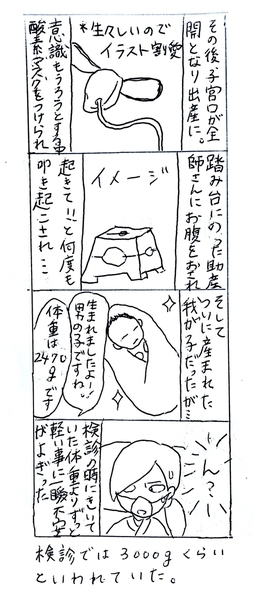 その後、子宮口が全
開となり出産に。
*生々しいので
イラスト割愛
意識もうろうとする中
酸素マスクをつけられ
踏み台にのった助産
師さんにお腹をおされ
イメージ
起きて!!と何度も
叩き起こされ…
そして
ついに産まれた
我が子だったが…
生まれましたよー!!
男の子ですね
体重は
2470gです
ん?
検診の時にきいて
いた体重よりずっと
軽い事に一瞬不安
がよぎった
検診では3000gくらい
といわれていた。